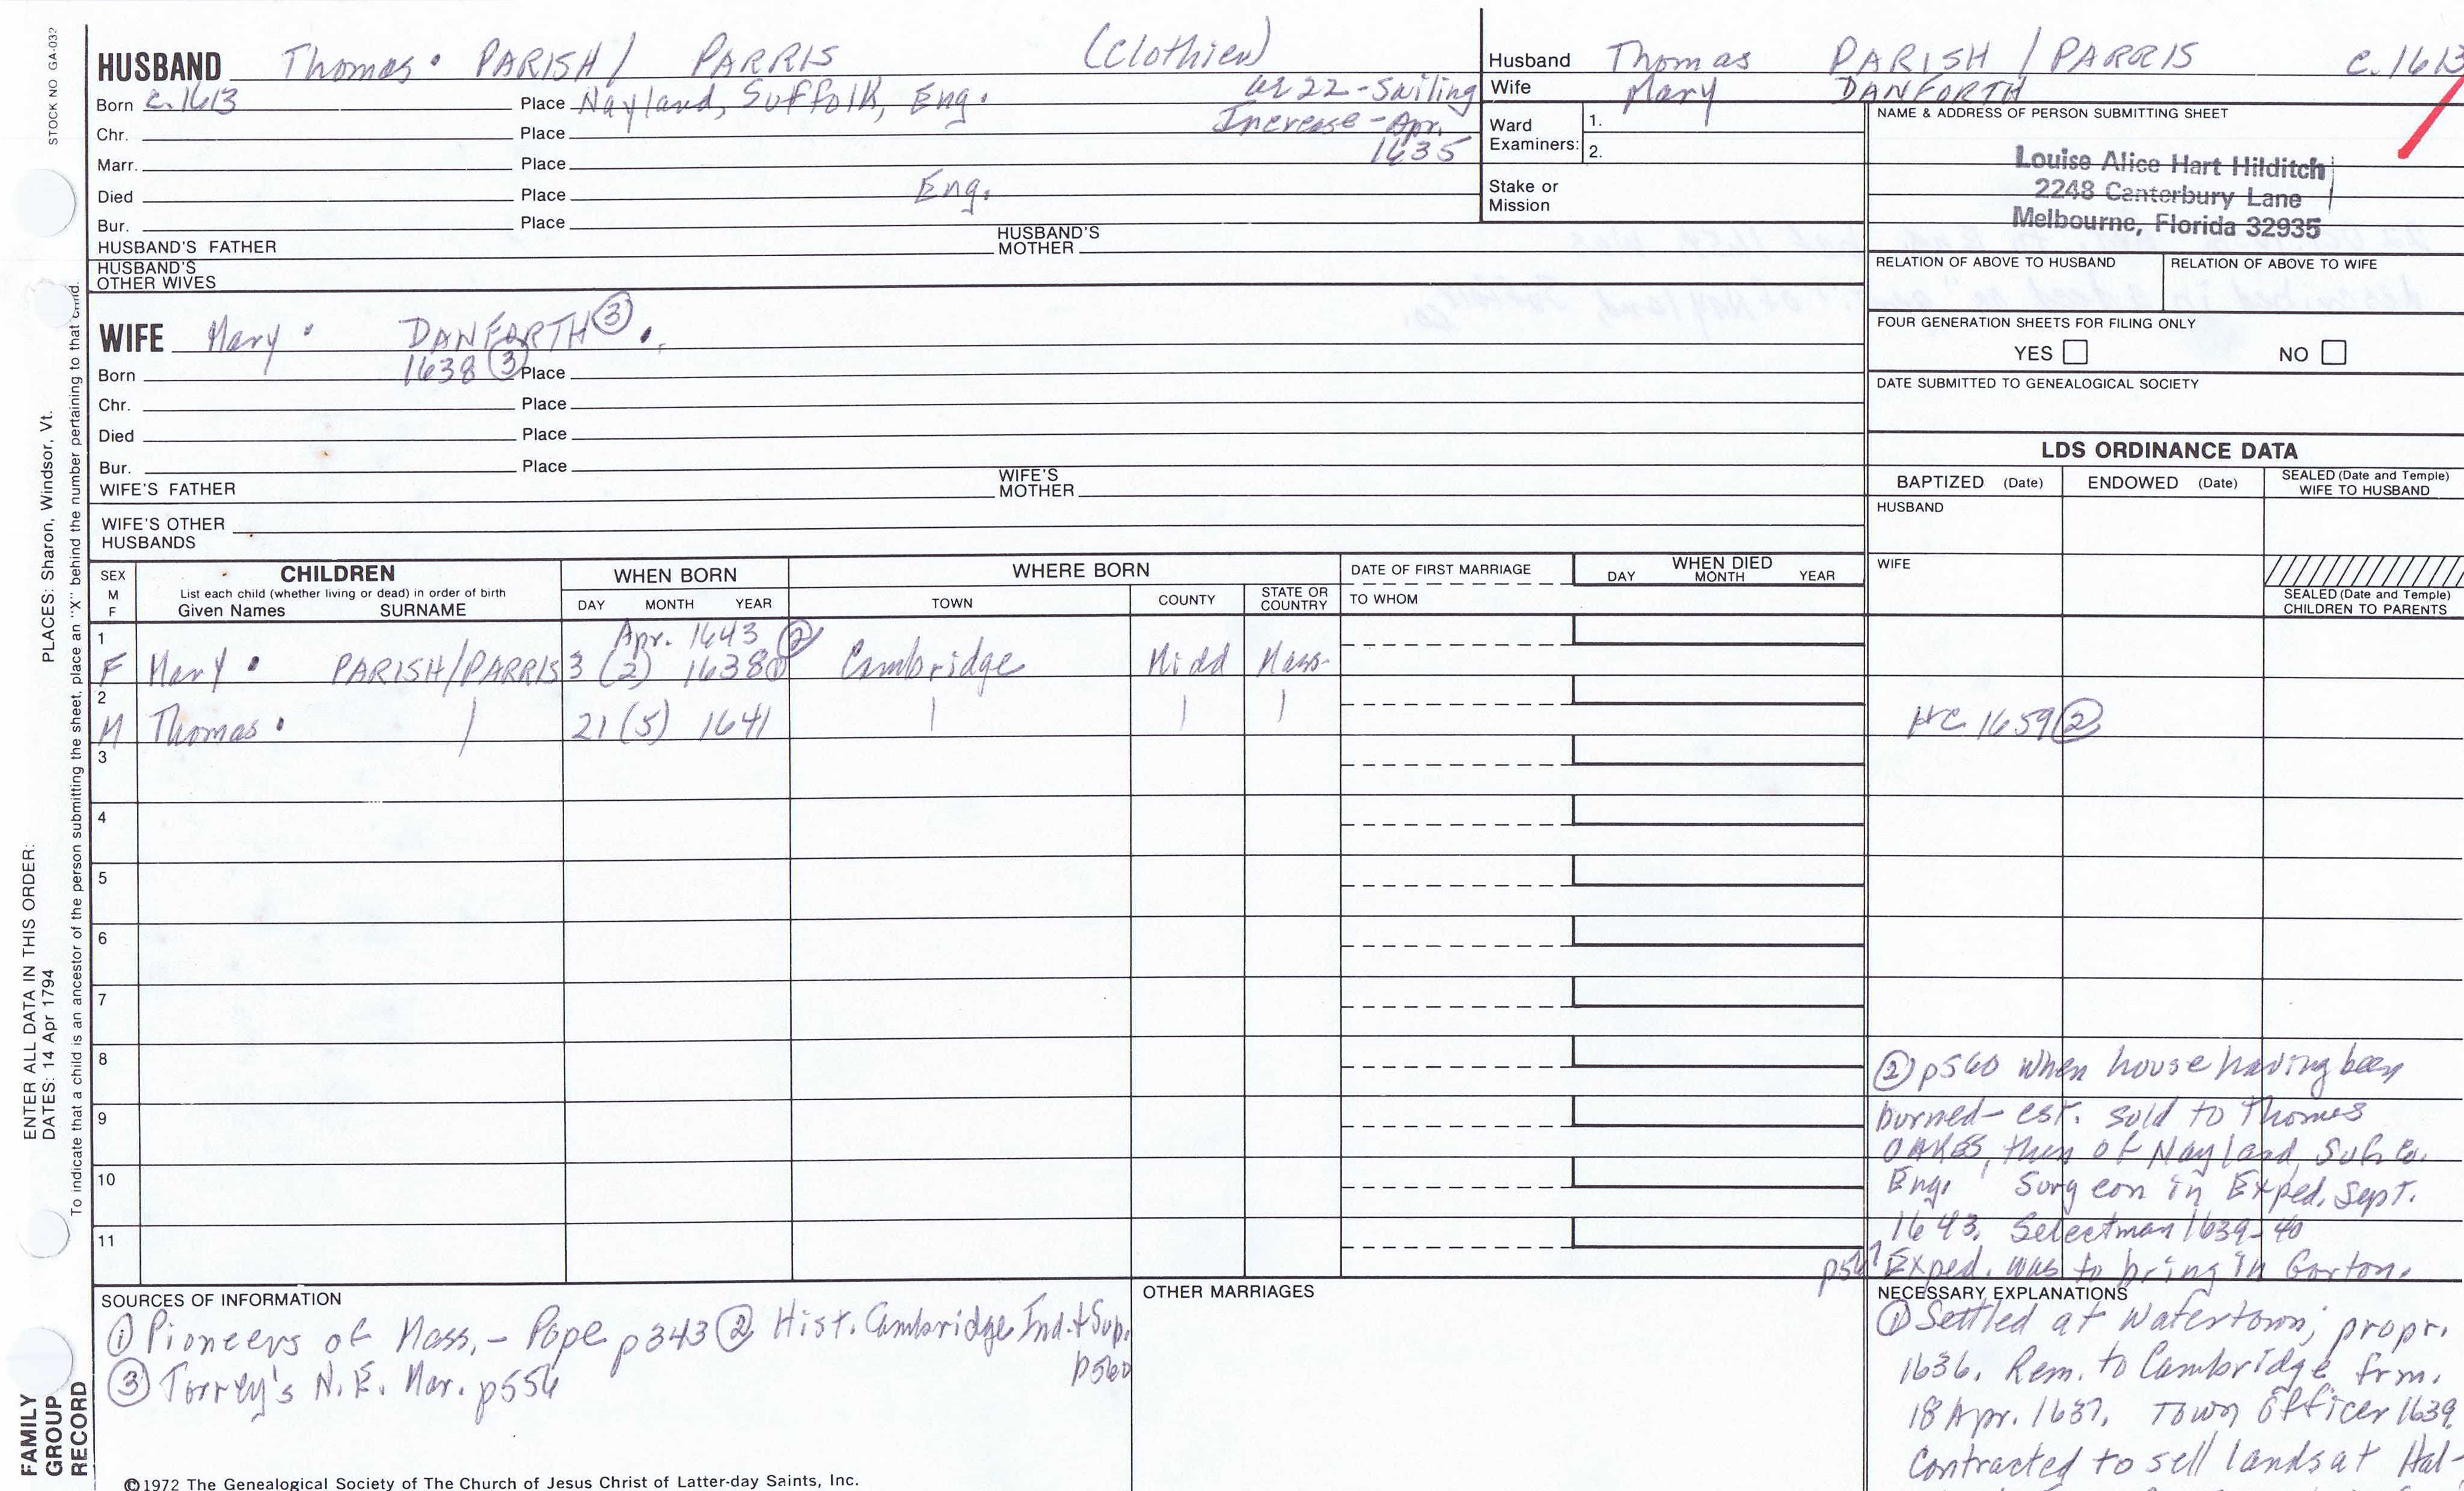 STOCK NO GA-032
HUSBAND Thomas PARISH / PARRIS (Clothier)
Born c.1613 Place Nayland, Suffolk, Eng. at 22 - Sailing
Chr. Place Increase - Apr.
Marr. Place 1635
Died Place Eng.
Bur. Place
HUSBAND'S FATHER HUSBAND'S MOTHER
HUSBAND'S OTHER WIVES
WIFE Mary DANFORTH ③
Born 1638 ③ Place
Chr. Place
Died Place
Bur. Place
WIFE'S FATHER WIFE'S MOTHER
WIFE'S OTHER HUSBANDS
Husband Thomas PARISH / PARRIS c.1613
Wife Mary DANFORTH
Ward Examiners: 1.
2.
Stake or Mission
NAME & ADDRESS OF PERSON SUBMITTING SHEET
Louise Alice Hart Hilditch
2248 Canterbury Lane
Melbourne, Florida 32935
RELATION OF ABOVE TO HUSBAND RELATION OF ABOVE TO WIFE
FOUR GENERATION SHEETS FOR FILING ONLY
YES NO
DATE SUBMITTED TO GENEALOGICAL SOCIETY
LDS ORDINANCE DATA
BAPTIZED (Date) ENDOWED (Date) SEALED (Date and Temple) WIFE TO HUSBAND
HUSBAND
WIFE
SEALED (Date and Temple) CHILDREN TO PARENTS
SEX M F
CHILDREN
List each child (whether living or dead) in order of birth
Given Names SURNAME
WHEN BORN
DAY MONTH YEAR
WHERE BORN
TOWN COUNTY STATE OR COUNTRY
DATE OF FIRST MARRIAGE
TO WHOM
WHEN DIED
DAY MONTH YEAR
1 Apr. 1643 ②
F Mary PARISH/PARRIS 3 (2) 1638 ① Cambridge Midd Mass.
2
M Thomas / 21 (5) 1641 | | | HC 1659 ②
3
4
5
6
7
8
9
10
11
② p560 when house having been
burned - est. sold to Thomas
OAKES, then of Nayland, Suf. Co.
Eng. Surgeon in Exped. Sept.
1643. Selectman 1639-40
Exped. was to bring in Gorton.
SOURCES OF INFORMATION
① Pioneers of Mass. - Pope p343 ② Hist. Cambridge Ind. + Sup.
p560
③ Torrey's N.E. Mar. p556
OTHER MARRIAGES
NECESSARY EXPLANATIONS
① Settled at Watertown; propr.
1636. Rem. to Cambridge frm.
18 Apr. 1637. Town Officer 1639.
Contracted to sell lands at Hal-
©1972 The Genealogical Society of The Church of Jesus Christ of Latter-day Saints, Inc.
FAMILY GROUP RECORD
ENTER ALL DATA IN THIS ORDER:
DATES: 14 Apr 1794 PLACES: Sharon, Windsor, Vt.
To indicate that a child is an ancestor of the person submitting the sheet, place an "X" behind the number pertaining to that child.